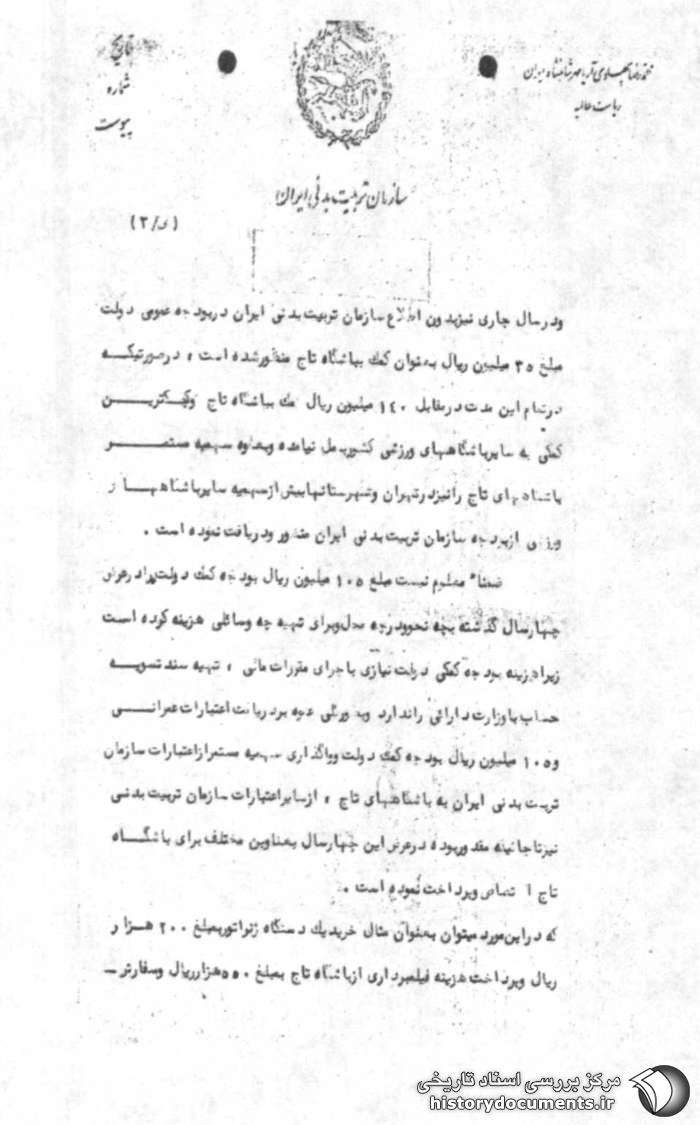 محمدرضا پهلوی آریامهر شاهنشاه ایران
ریاست عالیه
تاریخ
شماره
پیوست
سازمان تربیت بدنی ایران
(۲/ی)
ودرسال جاری نیزبدون اطلاع سازمان تربیت بدنی ایران دربودجه عمومی دولت
مبلغ ۳۵ میلیون ریال بعنوان کمک بباشگاه تاج منظورشده است ، درصورتیکه
درتمام این مدت درمقابل ۱۴۰ میلیون ریال کمک بباشگاه تاج کوچکترین
کمکی به سایرباشگاههای ورزشی کشوربعمل نیامده وبعلاوه سهمیه مستمر
باشگاههای تاج رانیزدرتهران وشهرستانهابیش ازسهمیه سایرباشگاهها
ورزشی ازبودجه سازمان تربیت بدنی ایران منظور ودریافت نموده است .
ضمناً معلوم نیست مبلغ ۱۰۵ میلیون ریال بودجه کمک دولت درعرض
چهارسال گذشته بچه نحوودرچه محل وبرای تهیه چه وسائلی هزینه کرده است
زیراهزینه بودجه کمکی دولت نیازی باجرای مقررات مالی ، تهیه سند تسویه
حساب باوزارت دارائی راندارد علاوه بردریافت اعتبارات عمرانی
و۱۰۵ میلیون ریال بودجه کمک دولت وواگذاری سهمیه مستمرازاعتبارات سازمان
تربیت بدنی ایران به باشگاههای تاج ، ازسایراعتبارات سازمان تربیت بدنی
نیزتاجائیکه مقدوربوده درعرض این چهارسال بعناوین مختلف برای باشگاه
تاج وپرداخت نموده است .
که دراین مورد میتوان بعنوان مثال خریدیک دستگاه ژنراتوربمبلغ ۲۰۰ هزار
ریال وپرداخت هزینه فیلمبرداری ازباشگاه تاج بمبلغ ۵۵۰هزارریال وسفارش ـ
مرکز بررسی اسناد تاریخی
historydocuments.ir